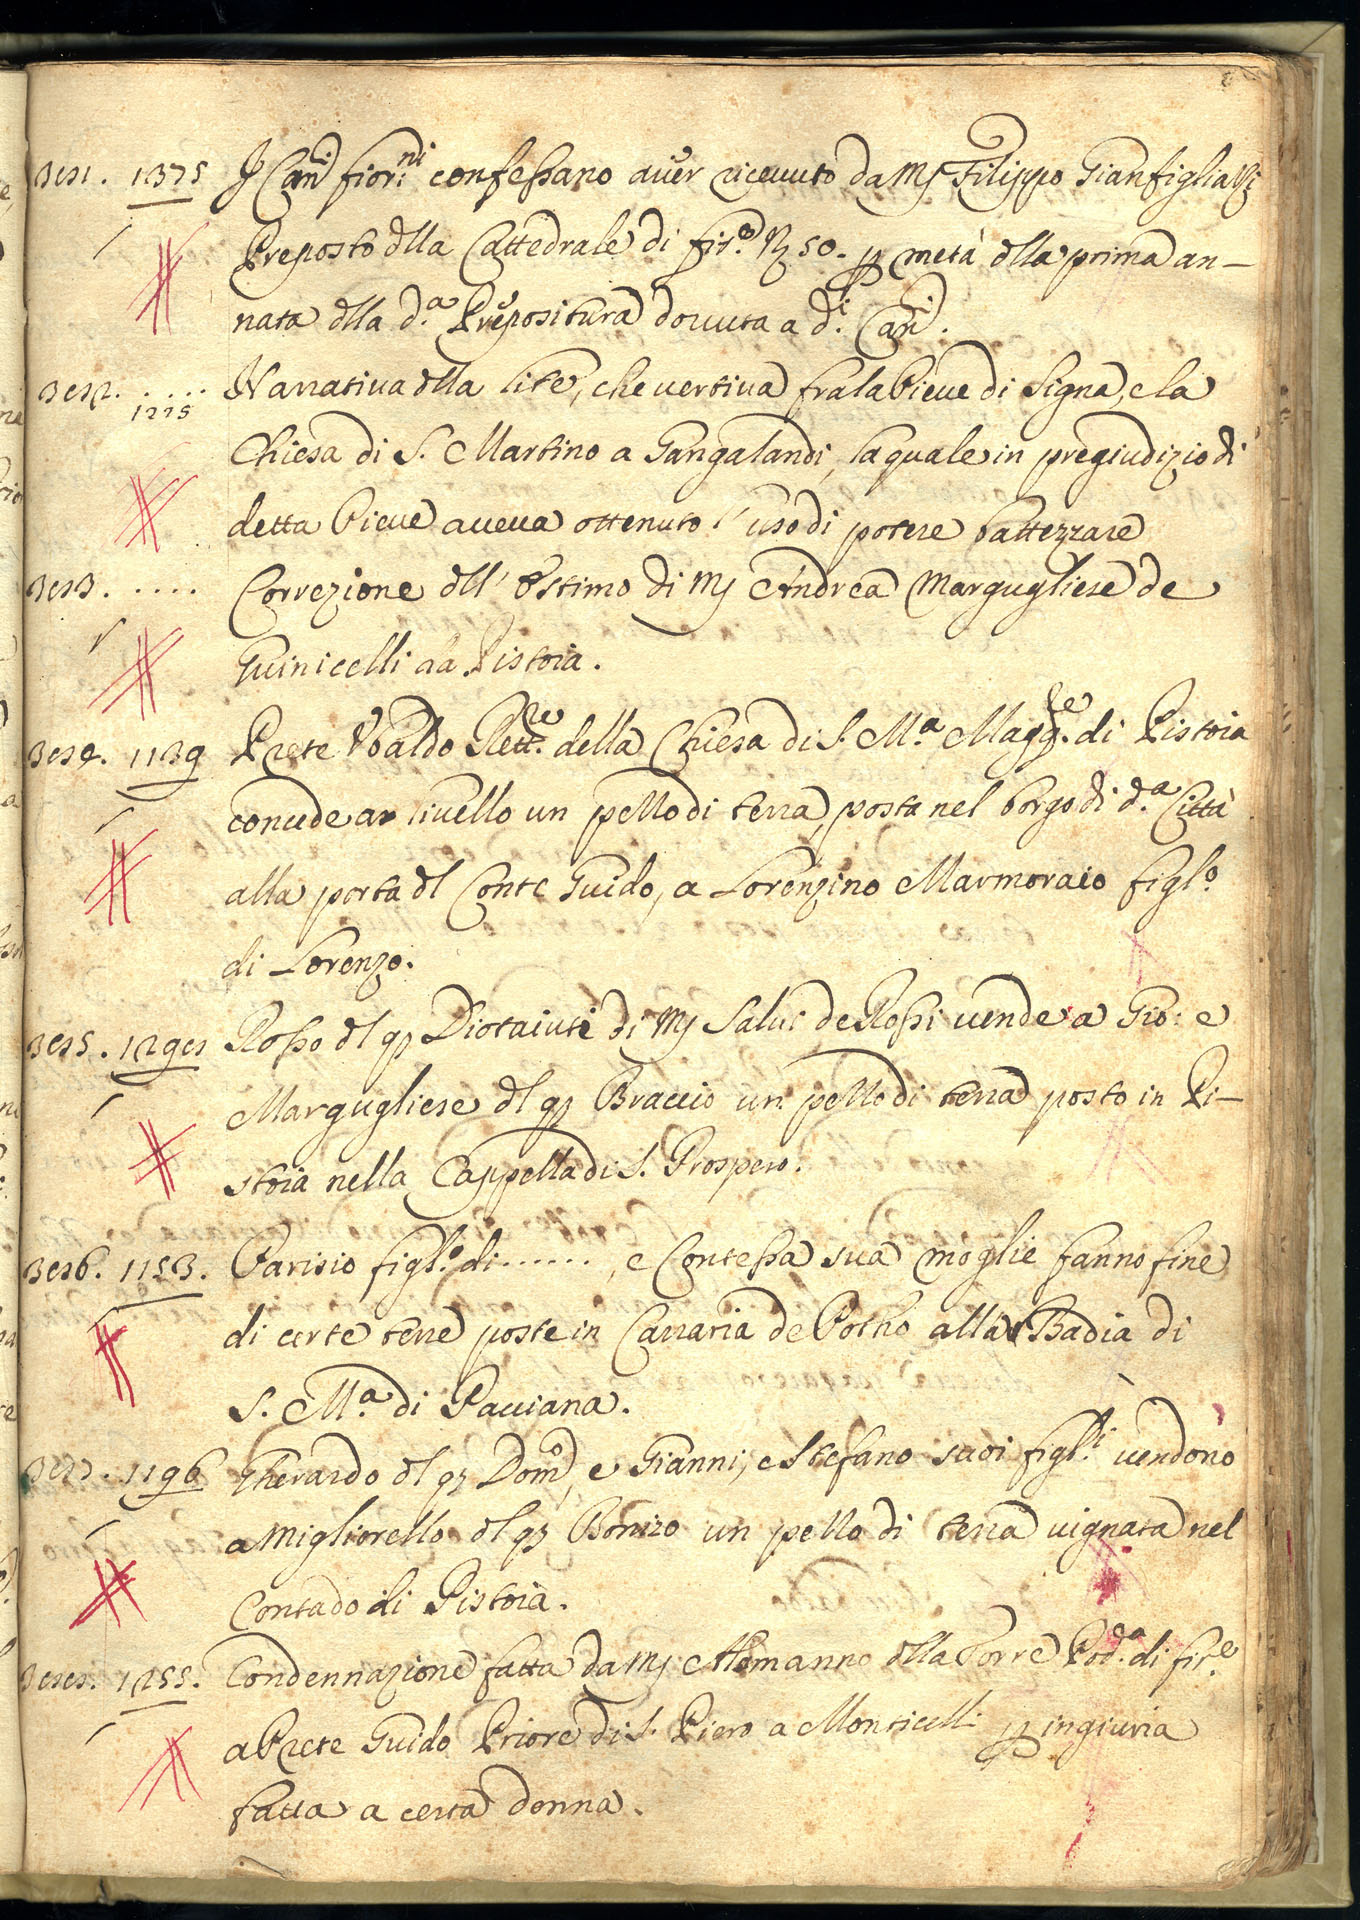 381. 1375 I Can.i fior.ni confessano aver ricevuto da Mſ Filippo Gianfigliazzi
Preposto dlla Cattedrale di fir.e 50. p metà dlla prima an-
nata dlla d.a Prepositura dovuta a d.i Can.i.
382. .... Narrativa dlla lite, che vertiva fra la Pieve di Signa, e la
1225
Chiesa di S. Martino a Gangalandi, la quale in pregiudizio di
detta Pieve aveva ottenuto l'uso di potere battezzare
383. .... Correzione dll' Estimo di Mſ Andrea Margugliese de
Guinicelli da Pistoia.
384. 1139 Prete Ubaldo Rett.re della Chiesa di S. M.a Magg.re di Pistoia
concede a livello un pezzo di terra, posta nel borgo di d.a Città
alla porta dl Conte Guido, a Lorenzino Marmoraio figl.o
di Lorenzo.
385. 1298 Rosso dl q Diotaiuti di Mſ Salvi de Rossi vende a Gio: e
Margugliese dl q Braccio un pezzo di terra posto in Pi-
stoia nella Cappella di S. Prospero.
386. 1153. Parisio figl.o di ......, e Contessa sua moglie fanno fine
di certe terre poste in Carraria de Potho alla Badia di
S. M.a di Pacciana.
387. 1196 Gherardo dl q Dom.o, e Gianni, e Stefano suoi figl.i vendono
a Migliorello dl q Bonizo un pezzo di terra vignata nel
Contado di Pistoia.
388. 1255. Condennazione fatta da Mſ Alamanno dlla Torre Pod.a di fir.e
a Prete Guido Priore di S. Piero a Monticelli p ingiuria
fatta a certa donna.